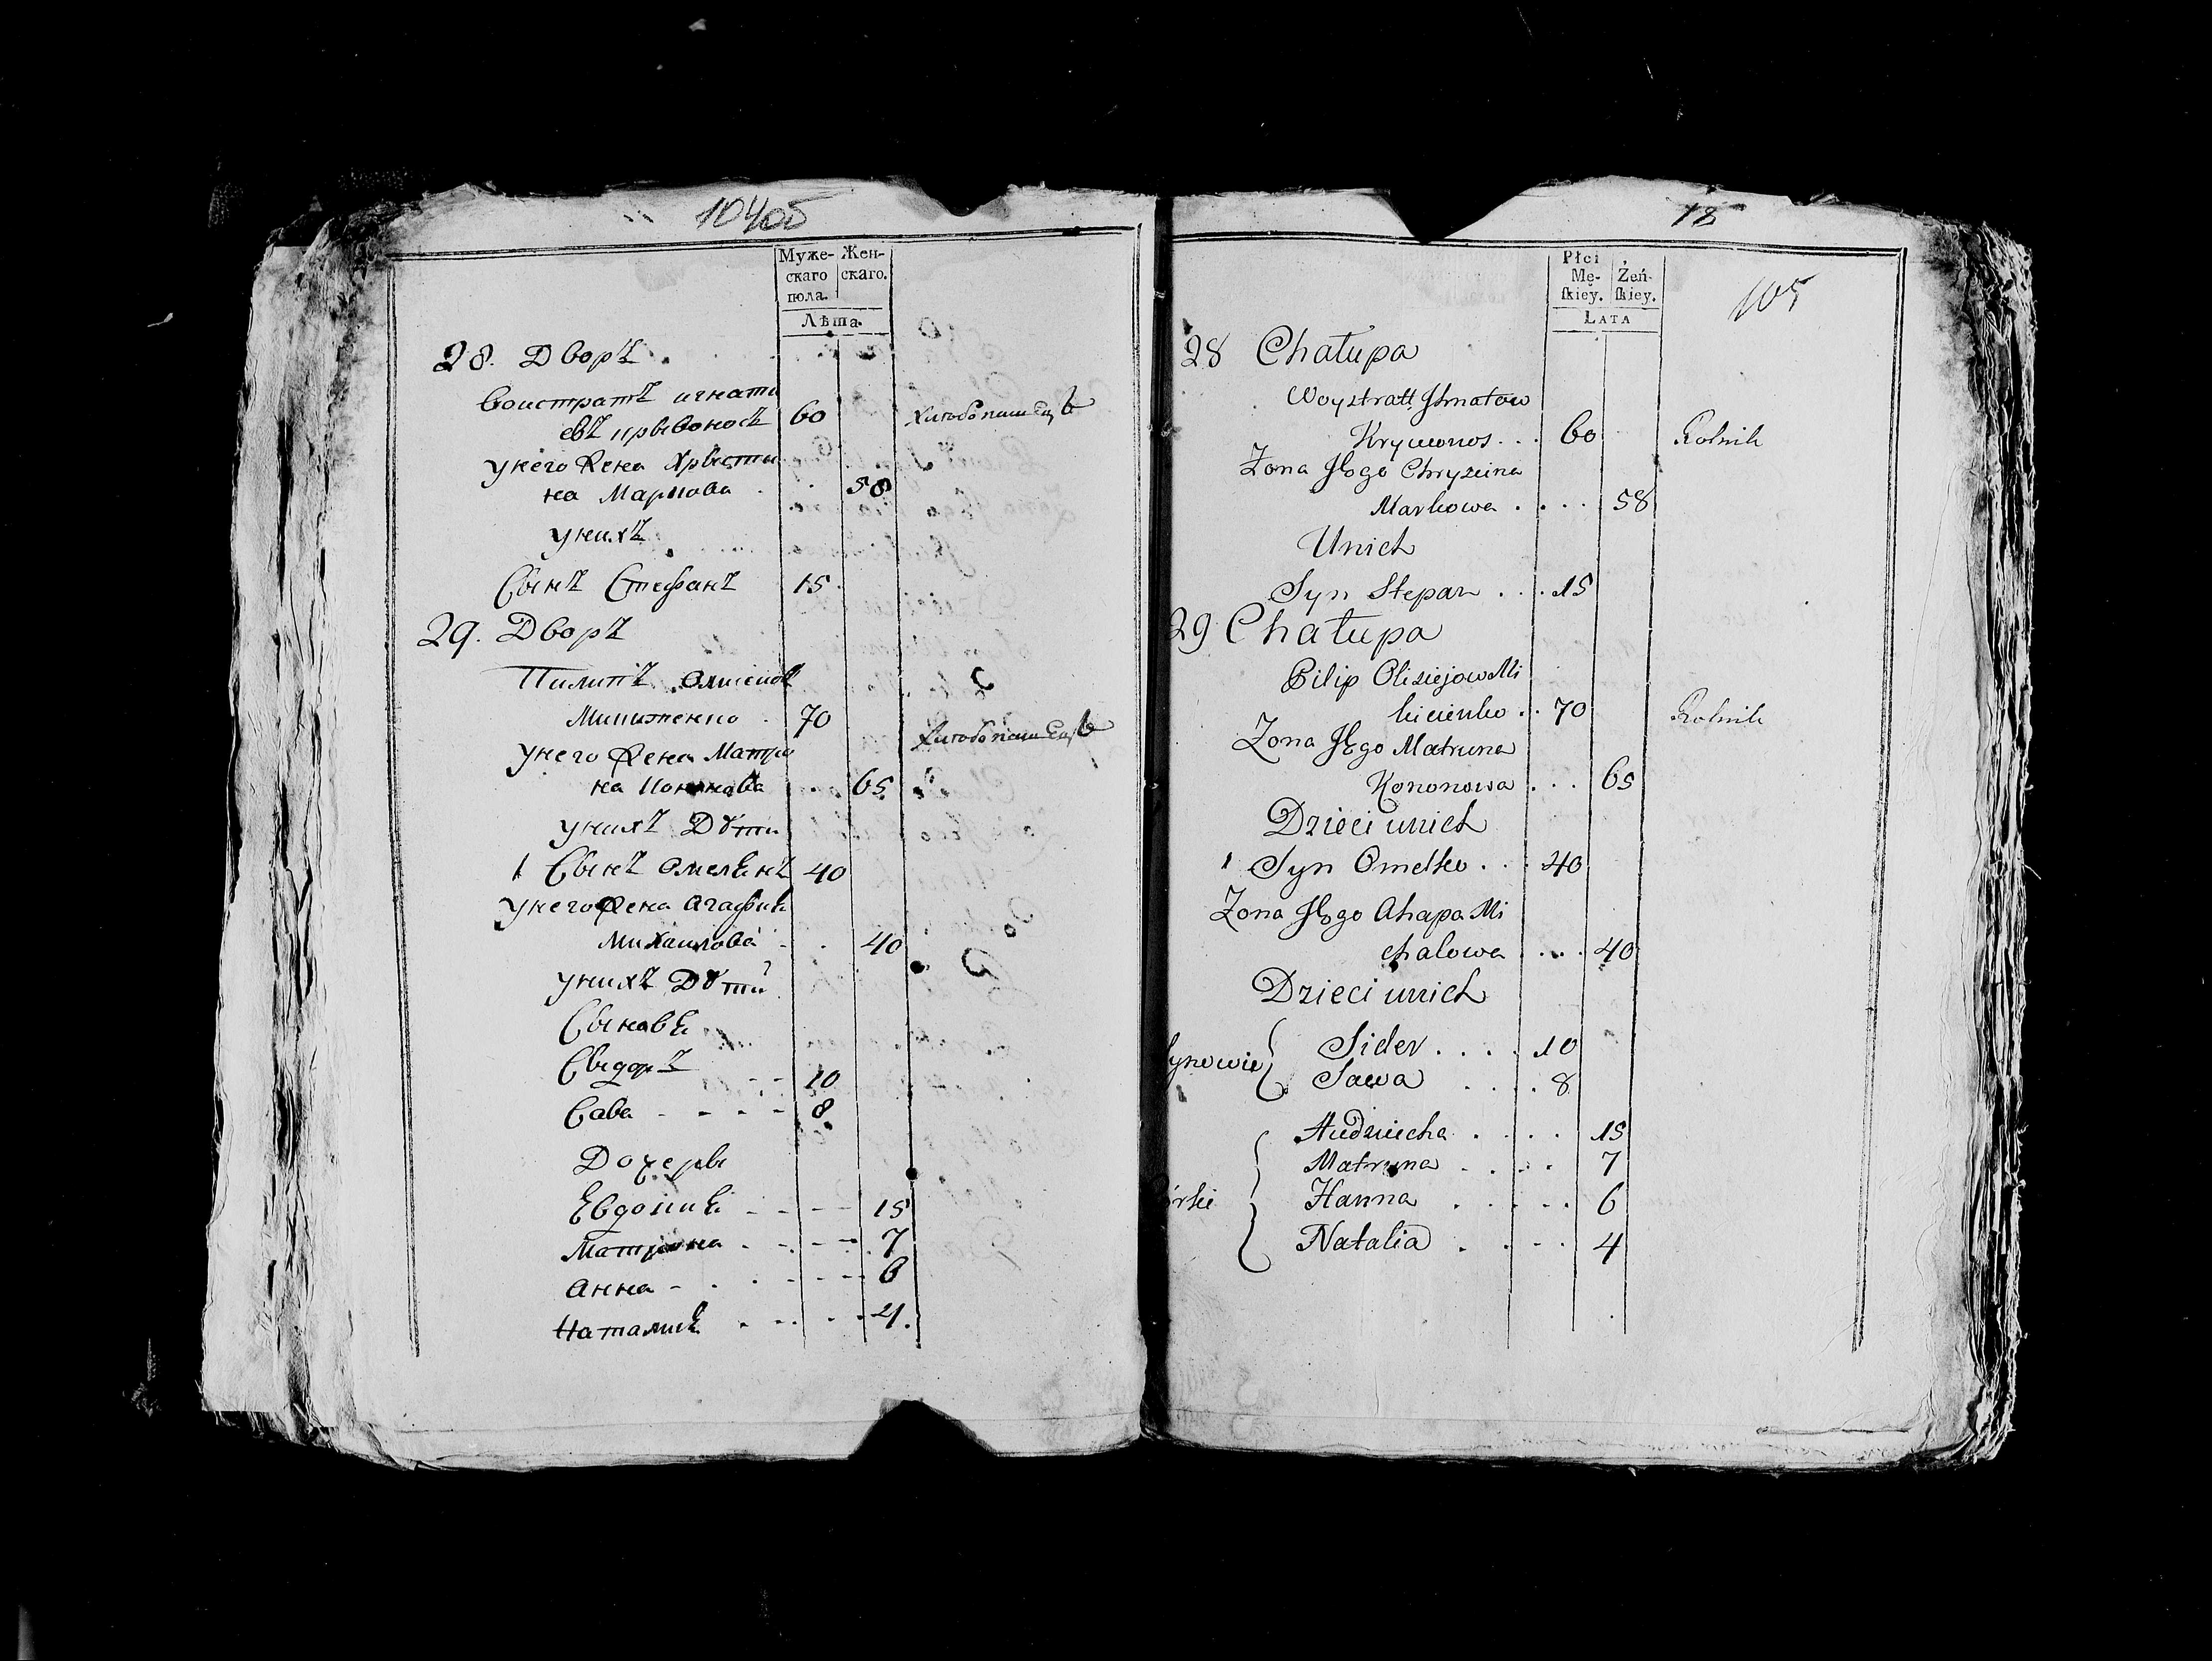 104об
Муже-
скаго
пола.
Жен-
скаго.
Лѣта.
28. Дворъ
Воистратъ игнати
евъ кривоносъ 60 хлебопашецъ
унего жена христи
на Маркова 58
унихъ
Сынъ Стефанъ 15
29. Дворъ
Пилипъ
Микитенко 70 хлебопашецъ
унего жена Матро
на Кононова 65
унихъ Дѣти
1 Сынъ омелянъ 40
унего жена агафия
михаилова 40
унихъ Дѣти
Сыновя
Сидоръ 10
Сава 8
Дочери
Евдокия 15
Матрона 7
анна 6
Наталия 4.
18
105
Płci
Mę-
ſkiey.
Żeń-
ſkiey.
LATA
28 Chałupa
Woystratt Jhnatow
Krywonos 60 Rolnik
Zona Jego Chrystina
Markowa 58
Unich
Syn Stepan 15
29 Chałupa
Pilip Olisiejow Mi
kicienko 70 Rolnik
Zona Jego Matruna
Kononowa 65
Dzieci unich
1 Syn Omelko 40
Zona Jego Ahapa Mi
chalowa 40
Dzieci unich
Synowie { Sider 10
Sawa 8
Audziucha 15
Matruna 7
Hanna 6
Natalia 4